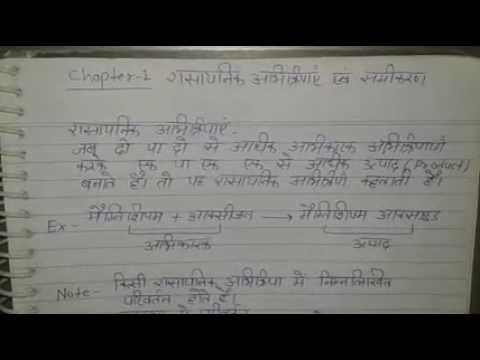 Chapter-1 रासायनिक अभिक्रियाएं एवं समीकरण
रासायनिक अभिक्रियाएं -
जब दो या दो से अधिक अभिकारक अभिक्रियाएं
करके एक या एक से अधिक उत्पाद (Product)
बनाते हैं। तो यह रासायनिक अभिक्रिया कहलाती है।
Ex:- मैग्निशियम + आक्सीजन → मैग्निशियम आक्साइड
अभिकारक उत्पाद
Note- किसी रासायनिक अभिक्रिया में निम्नलिखित
परिवर्तन होते हैं।